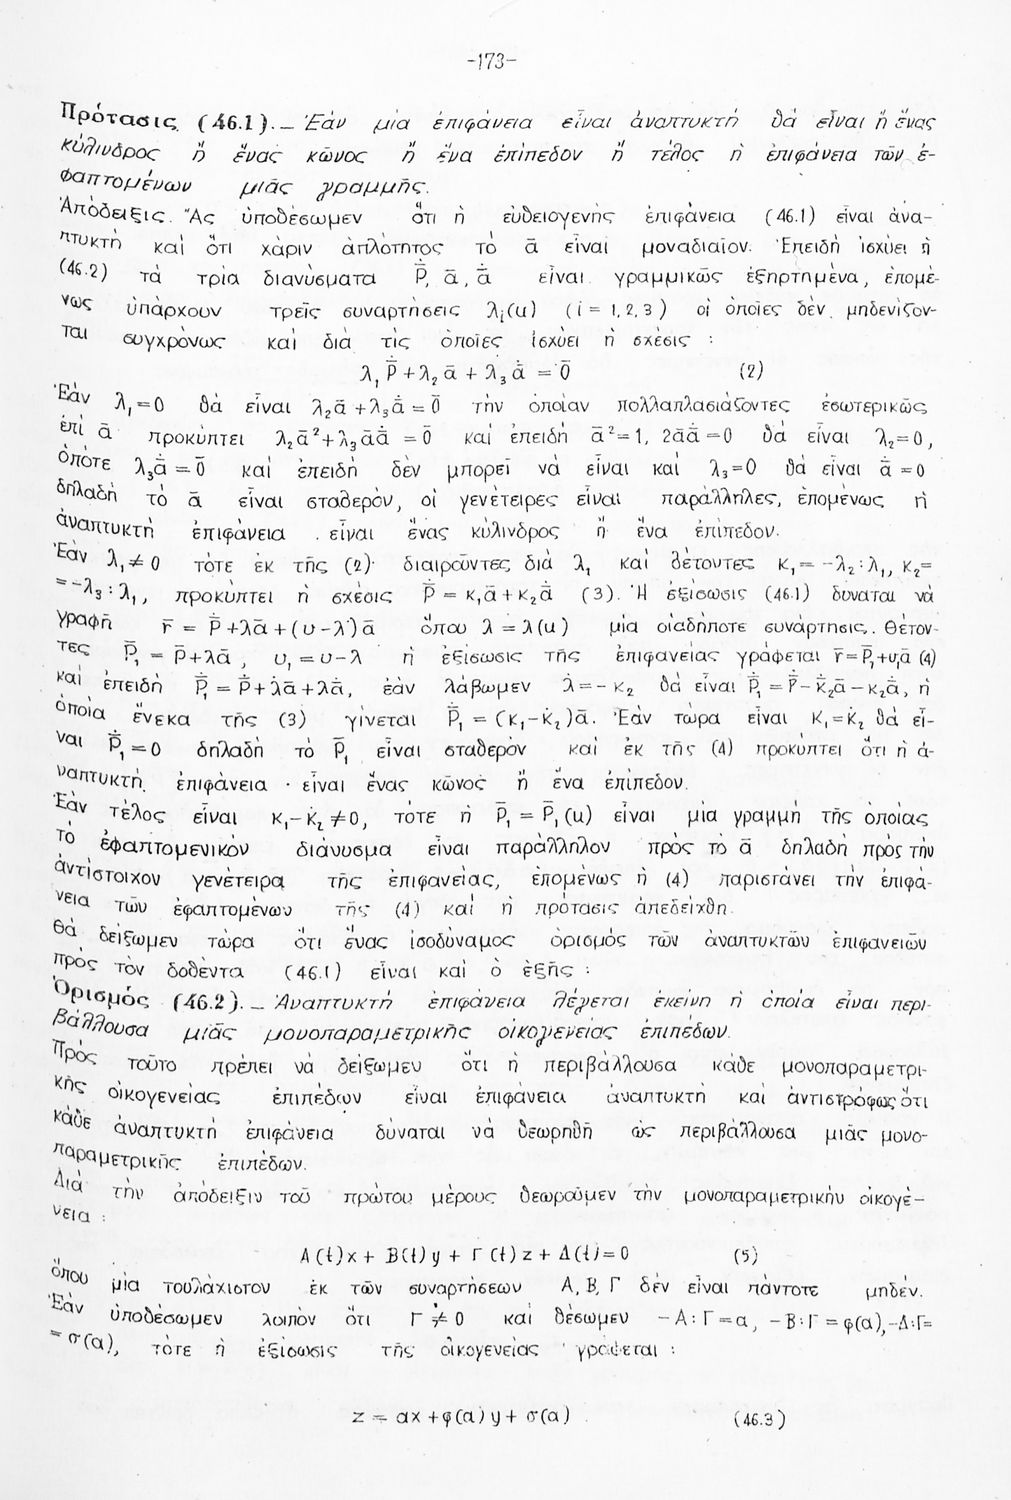 -173-
Πρότασις (46.1).— Ἐάν μία ἐπιφάνεια εἶναι ἀναπτυκτή θά εἶναι ἤ ἕνας
κύλινδρος ἤ ἕνας κῶνος ἤ ἕνα ἐπίπεδον ἤ τέλος ἡ ἐπιφάνεια τῶν ἐ-
φαπτομένων μιᾶς γραμμῆς.
Ἀπόδειξις. Ἄς ὑποθέσωμεν ὅτι ἡ εὐθειογενής ἐπιφάνεια (46.1) εἶναι ἀνα-
πτυκτή καί ὅτι χάριν ἁπλότητος τό ᾱ εἶναι μοναδιαῖον. Ἐπειδή ἰσχύει ἡ
(46.2) τά τρία διανύσματα Ṗ̄, ᾱ, ᾱ̇ εἶναι γραμμικῶς ἐξηρτημένα, ἑπομέ-
νως ὑπάρχουν τρεῖς συναρτήσεις λᵢ(u) (i = 1,2,3) οἱ ὁποῖες δέν μηδενίζον-
ται συγχρόνως καί διά τίς ὁποῖες ἰσχύει ἡ σχέσις :
λ₁Ṗ̄ + λ₂ᾱ + λ₃ᾱ̇ = 0̄ (2)
Ἐάν λ₁=0 θά εἶναι λ₂ᾱ+λ₃ᾱ̇=0̄ τήν ὁποίαν πολλαπλασιάζοντες ἐσωτερικῶς
ἐπί ᾱ προκύπτει λ₂ᾱ²+λ₃ᾱᾱ̇=0̄ καί ἐπειδή ᾱ²=1, 2ᾱᾱ̇=0 θά εἶναι λ₂=0,
ὁπότε λ₃ᾱ̇=0̄ καί ἐπειδή δέν μπορεῖ νά εἶναι καί λ₃=0 θά εἶναι ᾱ̇=0
δηλαδή τό ᾱ εἶναι σταθερόν, οἱ γενέτειρες εἶναι παράλληλες, ἑπομένως ἡ
ἀναπτυκτή ἐπιφάνεια εἶναι ἕνας κύλινδρος ἤ ἕνα ἐπίπεδον.
Ἐάν λ₁≠0 τότε ἐκ τῆς (2) διαιροῦντες διά λ₁ καί θέτοντες κ₁=-λ₂:λ₁, κ₂=
=-λ₃:λ₁, προκύπτει ἡ σχέσις Ṗ̄=κ₁ᾱ+κ₂ᾱ̇ (3). Ἡ ἐξίσωσις (46.1) δύναται νά
γραφῆ r̄ = P̄+λᾱ+(υ-λ)ᾱ ὅπου λ=λ(u) μία οἱαδήποτε συνάρτησις. Θέτον-
τες P̄₁ = P̄+λᾱ, υ₁=υ-λ ἡ ἐξίσωσις τῆς ἐπιφανείας γράφεται r̄=P̄₁+υ₁ᾱ (4)
καί ἐπειδή Ṗ̄₁=Ṗ̄+λ̇ᾱ+λᾱ̇, ἐάν λάβωμεν λ=-κ₂ θά εἶναι Ṗ̄₁=Ṗ̄-κ̇₂ᾱ-κ₂ᾱ̇, ἡ
ὁποία ἕνεκα τῆς (3) γίνεται Ṗ̄₁ = (κ₁-κ̇₂)ᾱ. Ἐάν τώρα εἶναι κ₁=κ̇₂ θά εἶ-
ναι Ṗ̄₁=0 δηλαδή τό P̄₁ εἶναι σταθερόν καί ἐκ τῆς (4) προκύπτει ὅτι ἡ ἀ-
ναπτυκτή ἐπιφάνεια εἶναι ἕνας κῶνος ἤ ἕνα ἐπίπεδον.
Ἐάν τέλος εἶναι κ₁-κ̇₂≠0, τότε ἡ P̄₁=P̄₁(u) εἶναι μία γραμμή τῆς ὁποίας
τό ἐφαπτομενικόν διάνυσμα εἶναι παράλληλον πρός τό ᾱ δηλαδή πρός τήν
ἀντίστοιχον γενέτειρα τῆς ἐπιφανείας, ἑπομένως ἡ (4) παριστάνει τήν ἐπιφά-
νεια τῶν ἐφαπτομένων τῆς (4) καί ἡ πρότασις ἀπεδείχθη.
Θά δείξωμεν τώρα ὅτι ἕνας ἰσοδύναμος ὁρισμός τῶν ἀναπτυκτῶν ἐπιφανειῶν
πρός τόν δοθέντα (46.1) εἶναι καί ὁ ἑξῆς :
Ὁρισμός (46.2).— Ἀναπτυκτή ἐπιφάνεια λέγεται ἐκείνη ἡ ὁποία εἶναι περι-
βάλλουσα μιᾶς μονοπαραμετρικῆς οἰκογενείας ἐπιπέδων.
Πρός τοῦτο πρέπει νά δείξωμεν ὅτι ἡ περιβάλλουσα κάθε μονοπαραμετρι-
κῆς οἰκογενείας ἐπιπέδων εἶναι ἐπιφάνεια ἀναπτυκτή καί ἀντιστρόφως ὅτι
κάθε ἀναπτυκτή ἐπιφάνεια δύναται νά θεωρηθῆ ὡς περιβάλλουσα μιᾶς μονο-
παραμετρικῆς ἐπιπέδων.
Διά τήν ἀπόδειξιν τοῦ πρώτου μέρους θεωροῦμεν τήν μονοπαραμετρικήν οἰκογέ-
νεια :
A(t)x + B(t)y + Γ(t)z + Δ(t) = 0 (5)
ὅπου μία τουλάχιστον ἐκ τῶν συναρτήσεων Α, Β, Γ δέν εἶναι πάντοτε μηδέν.
Ἐάν ὑποθέσωμεν λοιπόν ὅτι Γ≠0 καί θέσωμεν -Α:Γ=α, -Β:Γ=φ(α), -Δ:Γ=
=σ(α), τότε ἡ ἐξίσωσις τῆς οἰκογενείας γράφεται :
z = αx + φ(α)y + σ(α) (46.3)